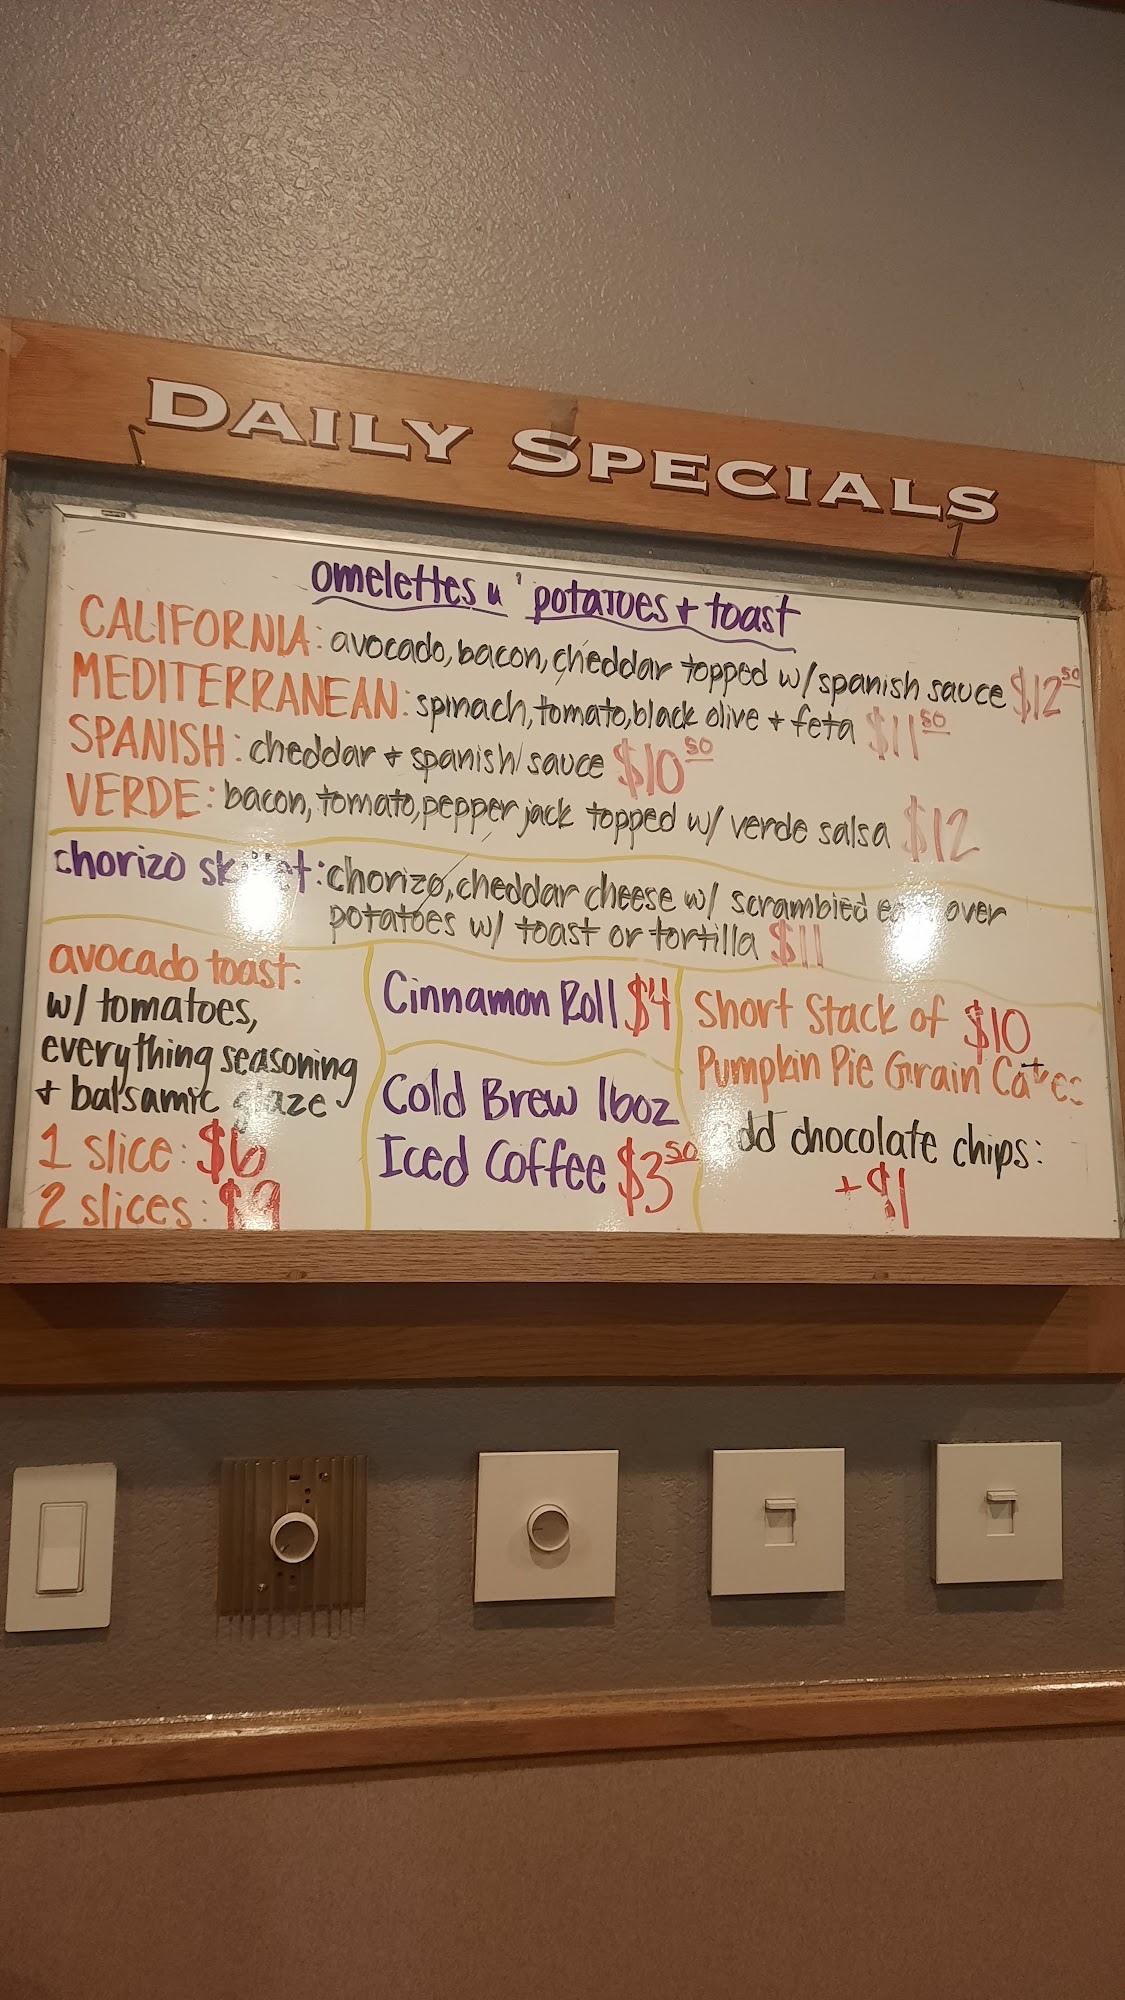 DAILY SPECIALS
omelettes w' potatoes + toast
CALIFORNIA: avocado, bacon, cheddar topped w/ spanish sauce $12 50
MEDITERRANEAN: spinach, tomato, black olive + feta $11 50
SPANISH: cheddar + spanish sauce $10 50
VERDE: bacon, tomato, pepper jack topped w/ verde salsa $12
chorizo skillet: chorizo, cheddar cheese w/ scrambled eggs over
potatoes w/ toast or tortilla $11
avocado toast:
w/ tomatoes,
everything seasoning
+ balsamic glaze
1 slice: $6
2 slices: $9
Cinnamon Roll $4
Cold Brew 16oz
Iced Coffee $3 50
Short Stack of $10
Pumpkin Pie Grain Cakes
add chocolate chips:
+$1